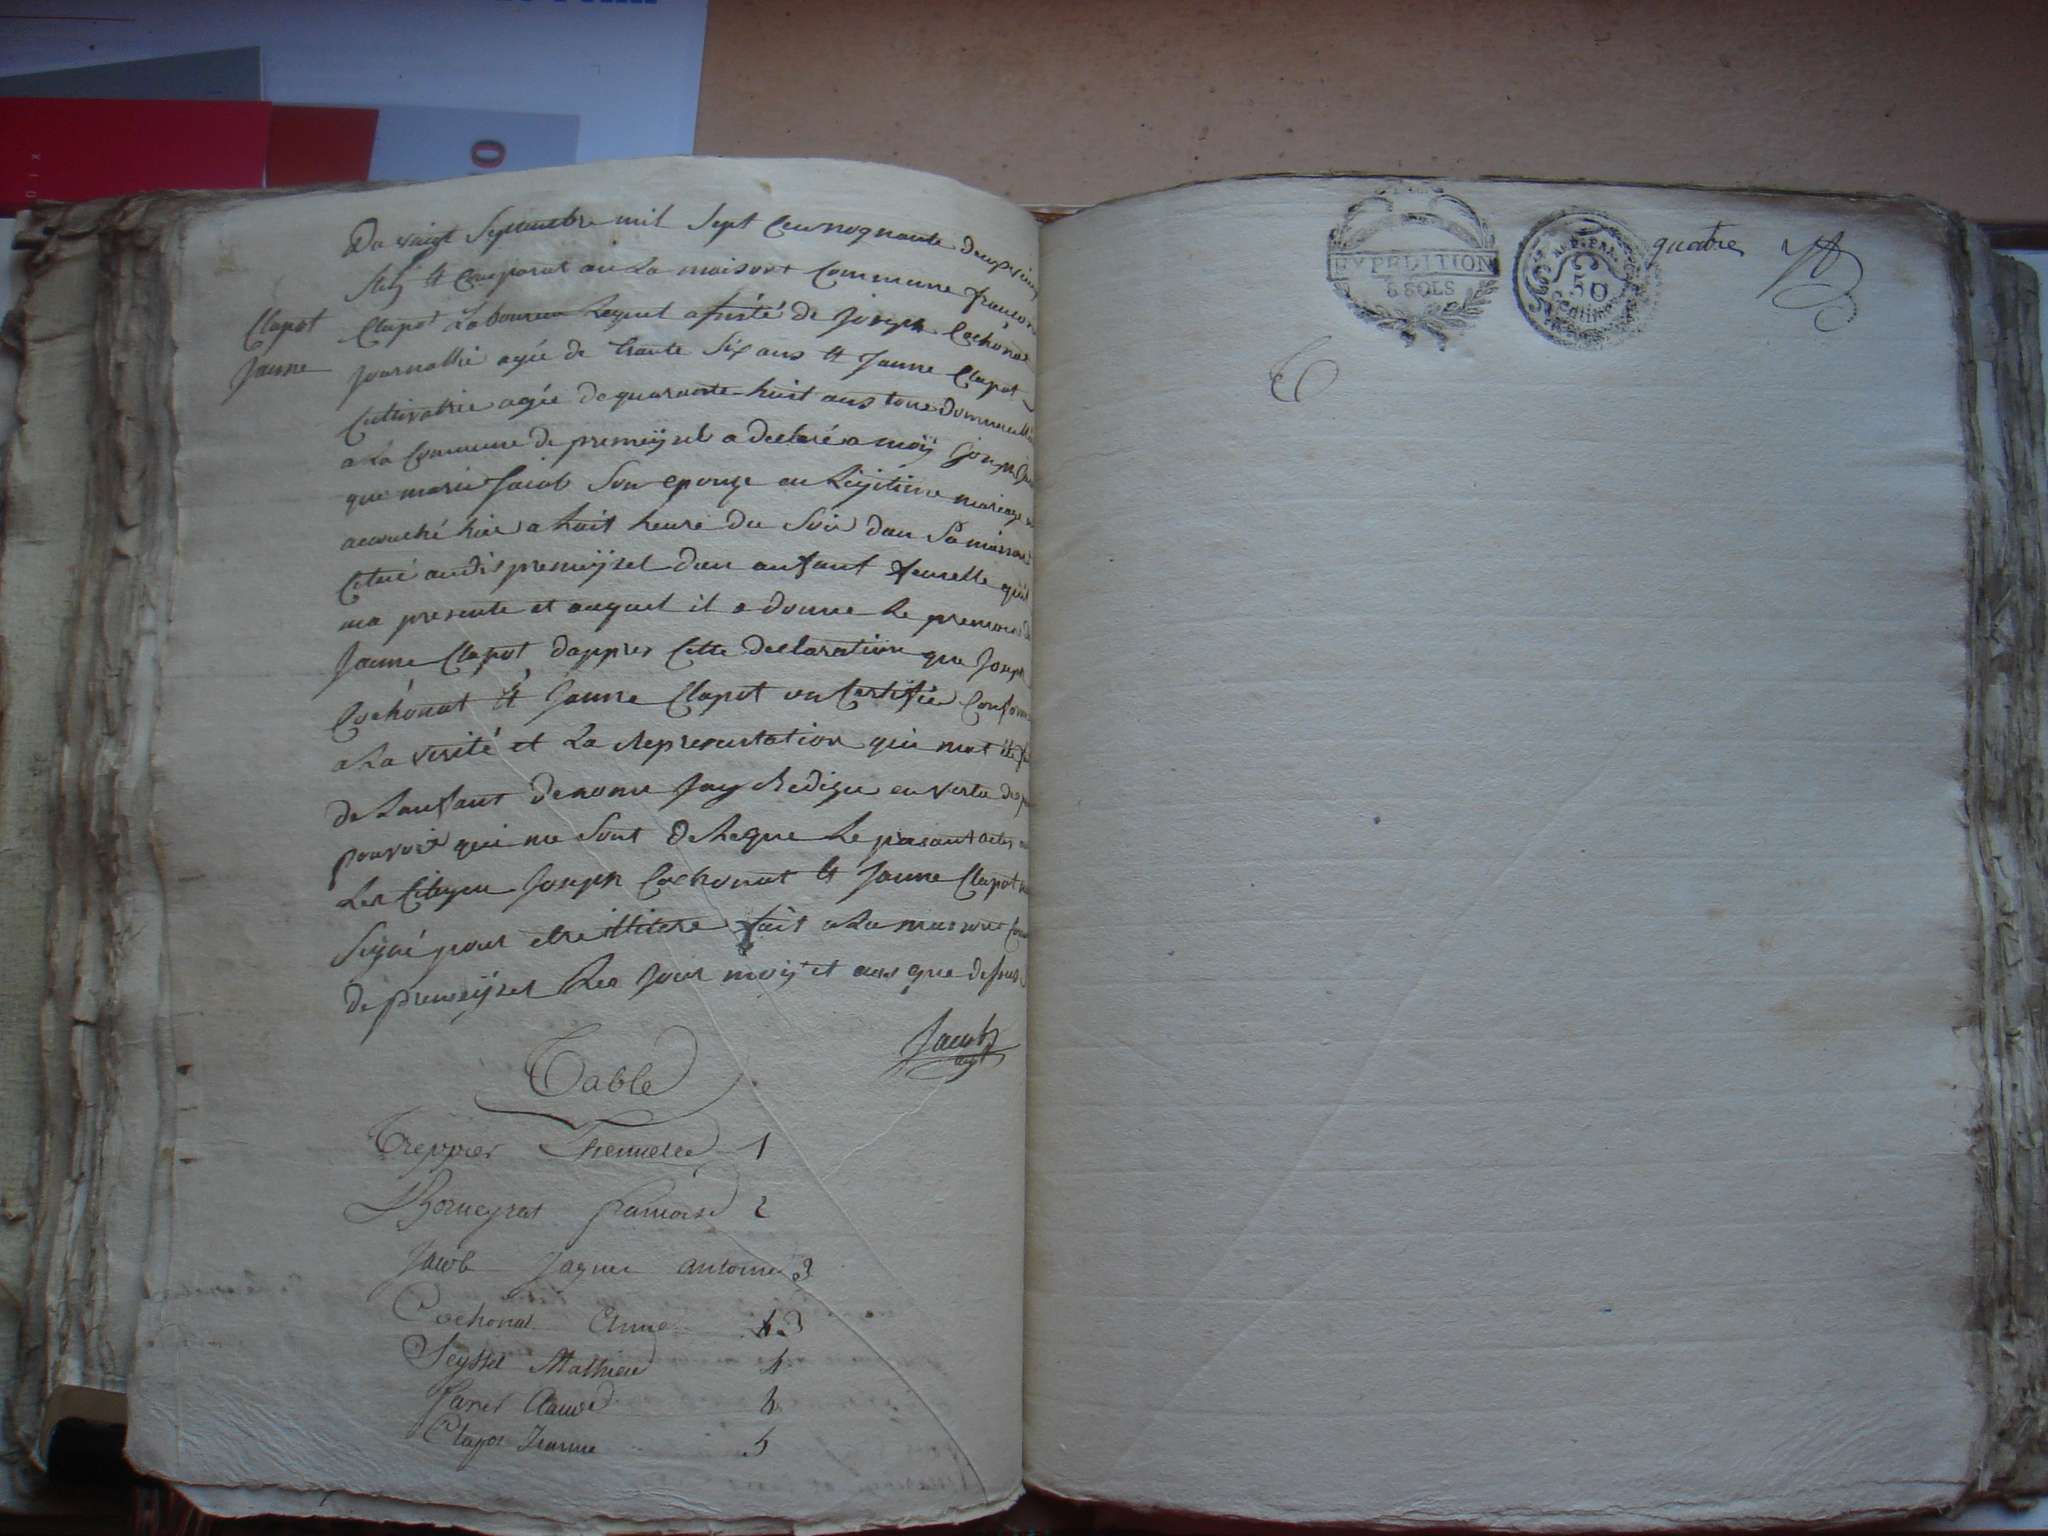 Du vaigt Septembre mil Sept Cen nognante deup
Et Comparut au La maison Commune françois
Clapot Laboureur Lequel assisté de Joseph Cochonat
Clapot
Jaune
Journallie agée de trante Six ans et Jaune Clapot
Cultivatrie agée de quarante-huit ans tous
a La Commune de premeÿzel a declaré a moÿ Joseph
que marie Jacob Son epouze au Légitime mariage
acouché hier a huit heure du Soir dans Sa maison
Cituée audit premeÿzel dun anfant femelle quil
ma presente et auquel il a donne Le prenom de
Jaune Clapot dappres Cette declaration que Joseph
Cochonat et Jaune Clapot on Certifie Conforme
a La verité et La Representation qui mat été
de Lanfant denome Jay Redige en vertu des
pouvoir qui me Sont deLegue Le présant
Les Citoyen Joseph Cochonat et Jaune Clapot
Signé pour etre illitere fait a La maison
de premeÿzel Les Jour moÿ et ans que dessus
Jacob
Table
Treppier 1
françoise 2
Jacob Jaques antoine 3
Cochonat Anne 3
Seyssel Mathieu 4
Claude 4
Clapot Jeanne 5
EXPEDITION
6 SOLS
REP. FRA.
50
Centimes
quatre